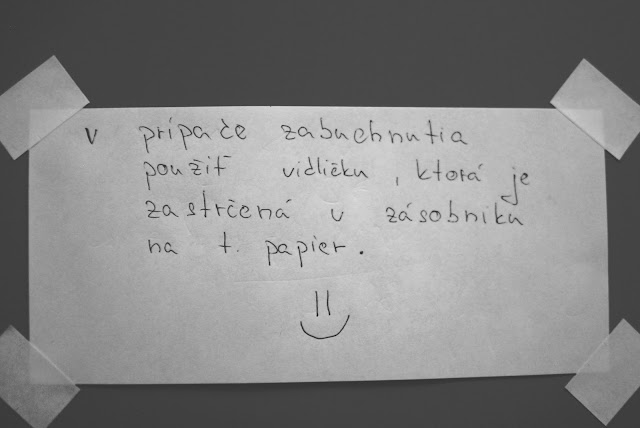 v prípače zabuchnutia
použiť vidličku, ktorá je
zastrčená v zásobníku
na t. papier.